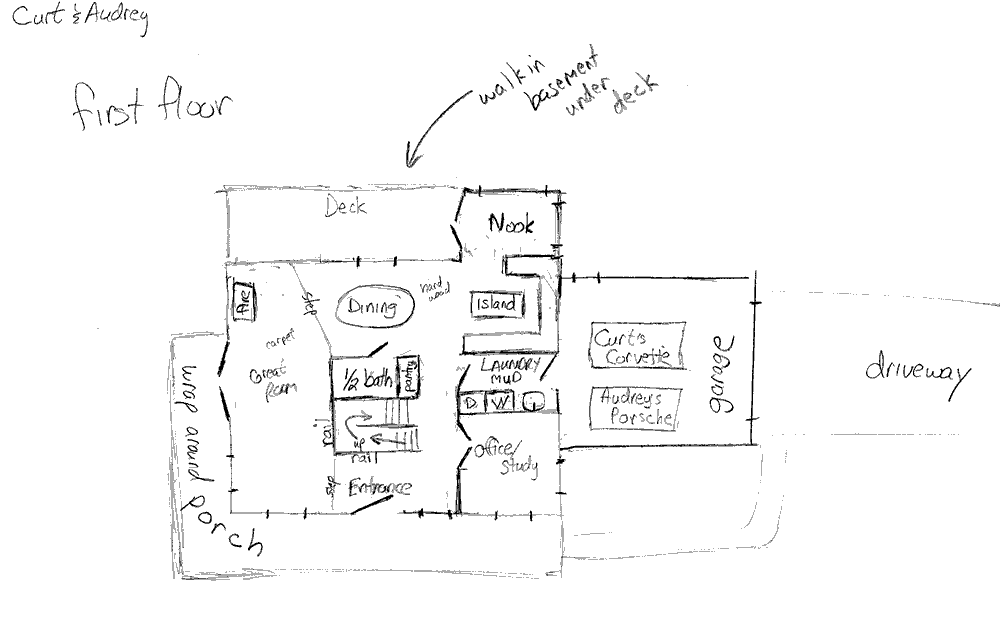 Curt & Audrey
first floor
walk in
basement
under
deck
Deck
Nook
Fire
step
Dining
hard
wood
Island
carpet
Great
Room
1/2 bath
pantry
LAUNDRY
MUD
D
W
Curt's
Corvette
Audrey's
Porsche
garage
driveway
wrap around
porch
rail
up
rail
Office/
study
step
Entrance